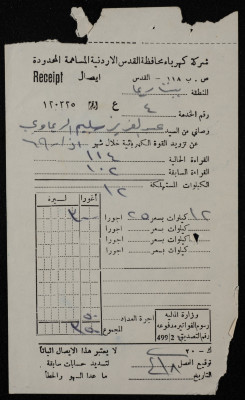 شركة كهرباء محافظة القدس الاردنية المساهمة المحدودة
ص. ب ١١٨ - القدس ايصال Receipt
المنطقة بيت ريما
رقم الخدمة ٤ ع ١٢٠٢٢٥
وصلني من السيد عبد العزيز سليم الريماوي
عن تزويد القوة الكهربائية خلال شهر
القراءة الحالية ١١٤
القراءة السابقة ١٠٢
الكيلوات المستهلكة ١٢
اجورا ليرة
١٢ كيلوات بسعر ٢٥ اجورا ٣٠٠
كيلوات بسعر اجورا
كيلوات بسعر اجورا
كيلوات بسعر اجورا
اجرة العداد ٥٠
المجموع ٣٥٠
وزارة المالية
رسوم الفواتير مدفوعة
رقم التصديق 499/2
ك - ٢٠
توقيع المحصل
التاريخ
لا يعتبر هذا الايصال اثباتاً
لتسديد حسابات سابقة
ما عدا السهو والخطأ